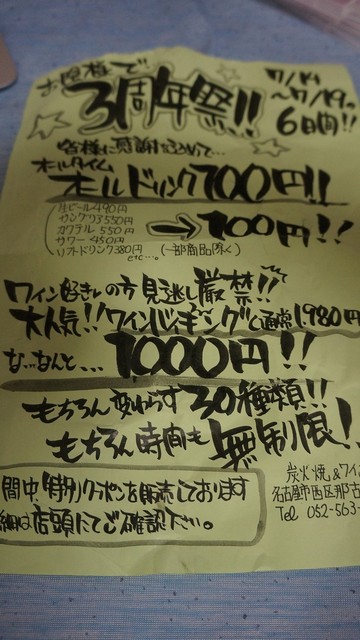 お陰様で
3周年祭!!
7/14
~7/19の
6日間!!
皆様に感謝を込めて…
オールタイム
オールドリンク100円!!
生ビール490円
サングリア550円
カクテル 550円
サワー 450円
ソフトドリンク380円
etc…。
→100円!!
(一部商品除く)
ワイン好きの方見逃し厳禁!!
大人気!!ワインバイキング 通常1,980円
な…なんと…1000円!!
もちろん変わらず30種類!!
もちろん時間も無制限!
間中、特別クーポンを販売しております
細は店頭にてご確認下さい。
炭火焼&ワイ
名古屋市西区那古
Tel 052-563-